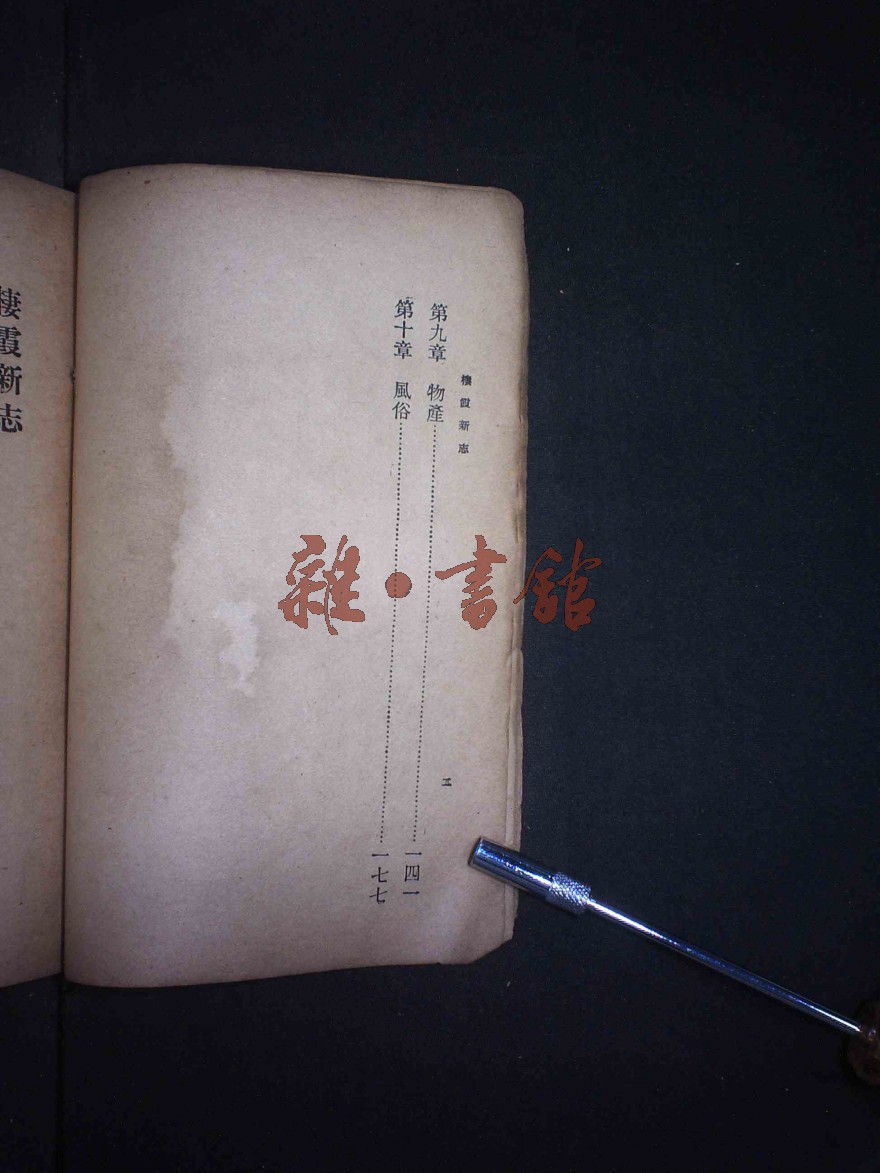 棲霞新志
第九章　物產………………一四一
第十章　風俗………………一七七
二
棲霞新志
雜·書館